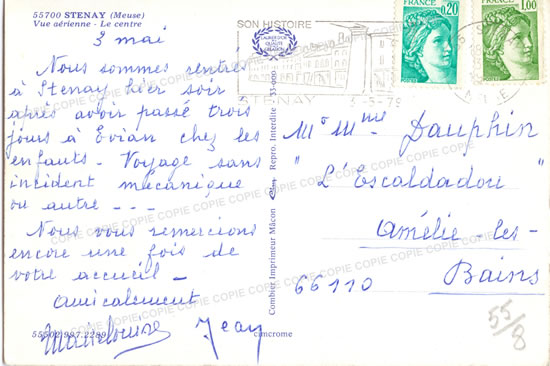 55700 STENAY (Meuse)
Vue aérienne - Le centre
3 mai
Nous sommes rentrés
à Stenay hier soir
après avoir passé trois
jours à Evian chez les
enfants - Voyage sans
incident mécanique
ou autre - - -
Nous vous remercions
encore une fois de
votre accueil -
amicalement
Marielouise Jean
cim crome
Combier Imprimeur Mâcon Repro. Interdite
SON HISTOIRE
STENAY
3-5-79
FRANCE
0,20
FRANCE
1,00
Mr Mme Dauphin
"L'Escaldadou"
Amélie-les-
Bains
66110
55/8
COPIE COPIE COPIE COPIE COPIE COPIE